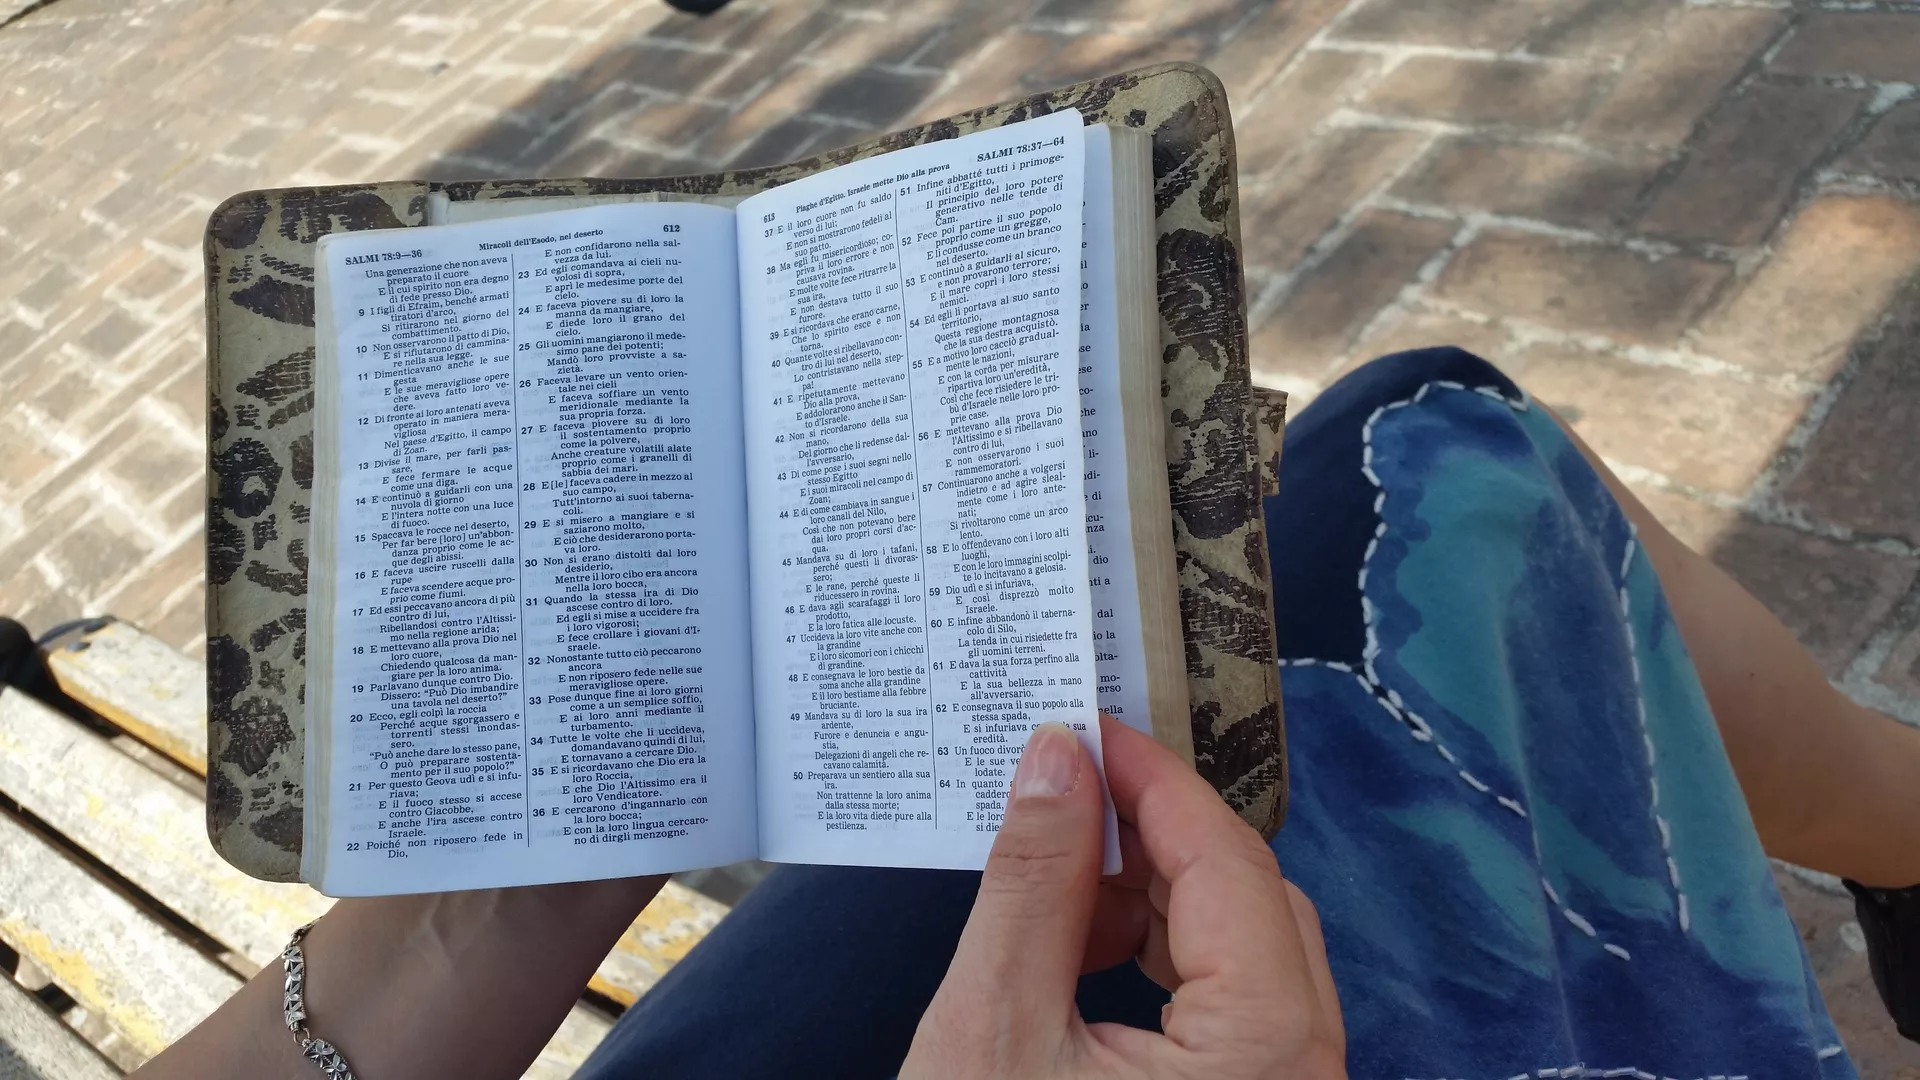 SALMI 78:9—36
Miracoli dell'Esodo, nel deserto
612
Una generazione che non aveva
preparato il cuore
E il cui spirito non era degno
di fede presso Dio.
9 I figli di Efraim, benché armati
tiratori d'arco,
Si ritirarono nel giorno del
combattimento.
10 Non osservarono il patto di Dio,
E si rifiutarono di cammina-
re nella sua legge.
11 Dimenticavano anche le sue
gesta
E le sue meravigliose opere
che aveva fatto loro ve-
dere.
12 Di fronte ai loro antenati aveva
operato in maniera mera-
vigliosa
Nel paese d'Egitto, il campo
di Zoan.
13 Divise il mare, per farli pas-
sare,
E fece fermare le acque
come una diga.
14 E continuò a guidarli con una
nuvola di giorno
E l'intera notte con una luce
di fuoco.
15 Spaccava le rocce nel deserto,
Per far bere [loro] un'abbon-
danza proprio come le ac-
que degli abissi.
16 E faceva uscire ruscelli dalla
rupe
E faceva scendere acque pro-
prio come fiumi.
17 Ed essi peccavano ancora di più
contro di lui,
Ribellandosi contro l'Altissi-
mo nella regione arida;
18 E mettevano alla prova Dio nel
loro cuore,
Chiedendo qualcosa da man-
giare per la loro anima.
19 Parlavano dunque contro Dio.
Dissero: “Può Dio imbandire
una tavola nel deserto?”
20 Ecco, egli colpì la roccia
Perché acque sgorgassero e
torrenti stessi inondas-
sero.
“Può anche dare lo stesso pane,
O può preparare sostenta-
mento per il suo popolo?”
21 Per questo Geova udì e si infu-
riava;
E il fuoco stesso si accese
contro Giacobbe,
E anche l'ira ascese contro
Israele.
22 Poiché non riposero fede in
Dio,
E non confidarono nella sal-
vezza da lui.
23 Ed egli comandava ai cieli nu-
volosi di sopra,
E aprì le medesime porte del
cielo.
24 E faceva piovere su di loro la
manna da mangiare,
E diede loro il grano del
cielo.
25 Gli uomini mangiarono il mede-
simo pane dei potenti;
Mandò loro provviste a sa-
zietà.
26 Faceva levare un vento orien-
tale nei cieli
E faceva soffiare un vento
meridionale mediante la
sua propria forza.
27 E faceva piovere su di loro
il sostentamento proprio
come la polvere,
Anche creature volatili alate
proprio come i granelli di
sabbia dei mari.
28 E [le] faceva cadere in mezzo al
suo campo,
Tutt'intorno ai suoi taberna-
coli.
29 E si misero a mangiare e si
saziarono molto,
E ciò che desiderarono porta-
va loro.
30 Non si erano distolti dal loro
desiderio,
Mentre il loro cibo era ancora
nella loro bocca,
31 Quando la stessa ira di Dio
ascese contro di loro.
Ed egli si mise a uccidere fra
i loro vigorosi;
E fece crollare i giovani d'I-
sraele.
32 Nonostante tutto ciò peccarono
ancora
E non riposero fede nelle sue
meravigliose opere.
33 Pose dunque fine ai loro giorni
come a un semplice soffio,
E ai loro anni mediante il
turbamento.
34 Tutte le volte che li uccideva,
domandavano quindi di lui,
E tornavano a cercare Dio.
35 E si ricordavano che Dio era la
loro Roccia,
E che Dio l'Altissimo era il
loro Vendicatore.
36 E cercarono d'ingannarlo con
la loro bocca;
E con la loro lingua cercaro-
no di dirgli menzogne.
613
Piaghe d'Egitto. Israele mette Dio alla prova
SALMI 78:37—64
37 E il loro cuore non fu saldo
verso di lui;
E non si mostrarono fedeli al
suo patto.
38 Ma egli fu misericordioso; co-
priva il loro errore e non
causava rovina.
E molte volte fece ritrarre la
sua ira,
E non destava tutto il suo
furore.
39 E si ricordava che erano carne,
Che lo spirito esce e non
torna.
40 Quante volte si ribellavano con-
tro di lui nel deserto,
Lo contristavano nella step-
pa!
41 E ripetutamente mettevano
Dio alla prova,
E addolorarono anche il San-
to d'Israele.
42 Non si ricordarono della sua
mano,
Del giorno che li redense dal-
l'avversario,
43 Di come pose i suoi segni nello
stesso Egitto
E i suoi miracoli nel campo di
Zoan;
44 E di come cambiava in sangue i
loro canali del Nilo,
Così che non potevano bere
dai loro propri corsi d'ac-
qua.
45 Mandava su di loro i tafani,
perché questi li divoras-
sero;
E le rane, perché queste li
riducessero in rovina.
46 E dava agli scarafaggi il loro
prodotto,
E la loro fatica alle locuste.
47 Uccideva la loro vite anche con
la grandine
E i loro sicomori con i chicchi
di grandine.
48 E consegnava le loro bestie da
soma anche alla grandine
E il loro bestiame alla febbre
bruciante.
49 Mandava su di loro la sua ira
ardente,
Furore e denuncia e angu-
stia,
Delegazioni di angeli che re-
cavano calamità.
50 Preparava un sentiero alla sua
ira.
Non trattenne la loro anima
dalla stessa morte;
E la loro vita diede pure alla
pestilenza.
51 Infine abbatté tutti i primoge-
niti d'Egitto,
Il principio del loro potere
generativo nelle tende di
Cam.
52 Fece poi partire il suo popolo
proprio come un gregge,
E li condusse come un branco
nel deserto.
53 E continuò a guidarli al sicuro,
e non provarono terrore;
E il mare coprì i loro stessi
nemici.
54 Ed egli li portava al suo santo
territorio,
Questa regione montagnosa
che la sua destra acquistò.
55 E a motivo loro cacciò gradual-
mente le nazioni,
E con la corda per misurare
ripartiva loro un'eredità,
Così che fece risiedere le tri-
bù d'Israele nelle loro pro-
prie case.
56 E mettevano alla prova Dio
l'Altissimo e si ribellavano
contro di lui,
E non osservarono i suoi
rammemoratori.
57 Continuarono anche a volgersi
indietro e ad agire sleal-
mente come i loro ante-
nati;
Si rivoltarono come un arco
lento.
58 E lo offendevano con i loro alti
luoghi,
E con le loro immagini scolpi-
te lo incitavano a gelosia.
59 Dio udì e si infuriava,
E così disprezzò molto
Israele.
60 E infine abbandonò il taberna-
colo di Silo,
La tenda in cui risiedette fra
gli uomini terreni.
61 E dava la sua forza perfino alla
cattività
E la sua bellezza in mano
all'avversario.
62 E consegnava il suo popolo alla
stessa spada,
E si infuriava sua
eredità.
63 Un fuoco divorò
E le sue
lodate.
64 In quanto
caddero
spada,
E le loro
si